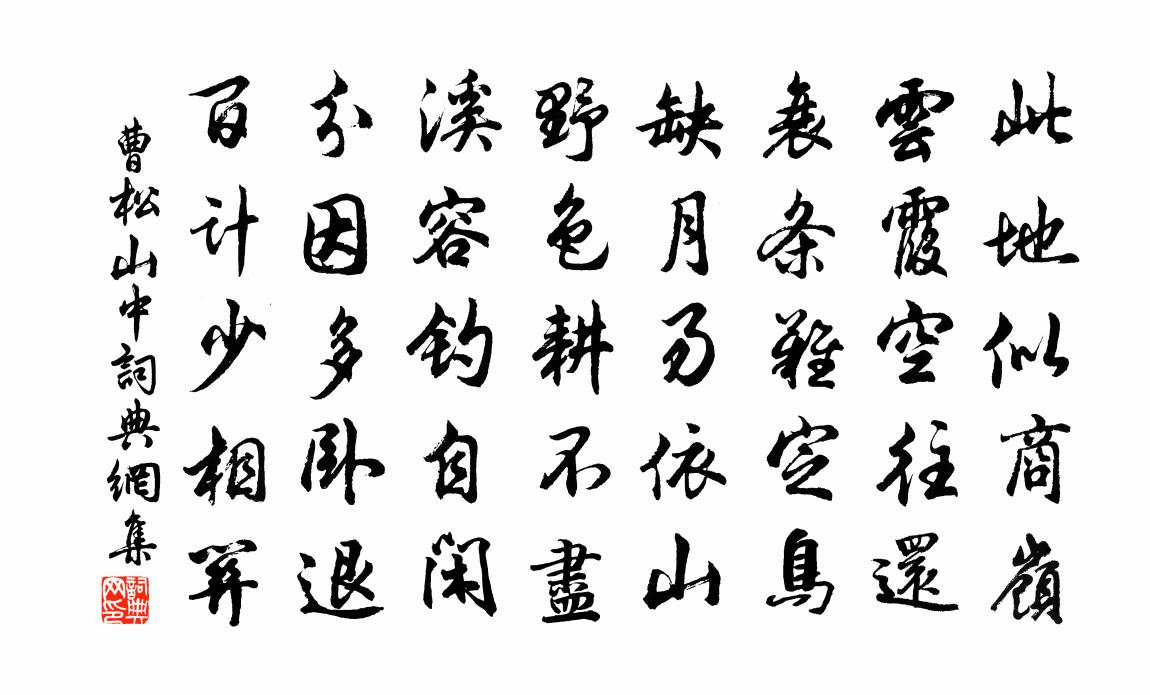 此地似商嶺
雲霞空往還
衰条難定鳥
缺月易依山
野色耕不盡
溪容釣自閑
分因多卧退
百計少相關
曹松山中詞典網集
詞典
网印